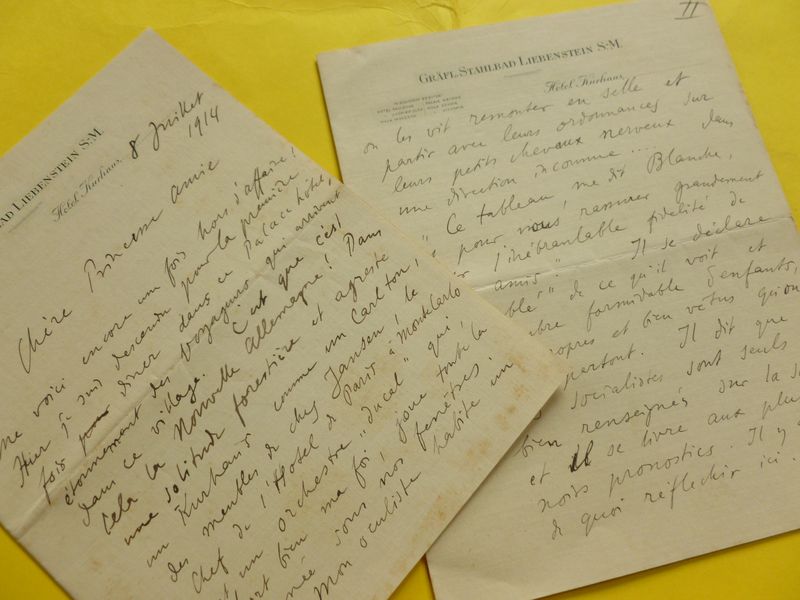 BAD LIEBENSTEIN S:M.
Hotel Kurhaus.
8 Juillet
1914
Chère Princesse amie
me voici encore une fois hors d'affaire!
Hier je suis descendu pour la première
fois pour diner dans ce Palace hôtel,
étonnement des voyageurs qui arrivent
dans ce village. C'est que c'est
cela la Nouvelle Allemagne! Dans
une solitude forestière et agreste
un Kurhaus comme un Carlton,
des meubles de chez Jansen, le
chef de l'Hotel de Paris à Monte Carlo
et un orchestre "ducal" qui,
fort bien ma foi, joue toute la
née sous nos fenêtres.
Mon oculiste habite un
II
GRÄFL. STAHLBAD LIEBENSTEIN S:M.
Hotel Kurhaus.
on les vit remonter en selle et
partir avec leurs ordonnances sur
leurs petits chevaux nerveux dans
une direction inconnue....
"Ce tableau, me dit Blanche,
pour vous rassurer grandement
l'inébranlable fidélité de
amis". Il se déclare
" de ce qu'il voit et
bre formidable d'enfants,
propres et bien vêtus qu'on
partout. Il dit que
socialistes sont seuls
bien renseignés sur la
et il se livre aux plus
noirs pronostics. Il y a
de quoi réfléchir ici.